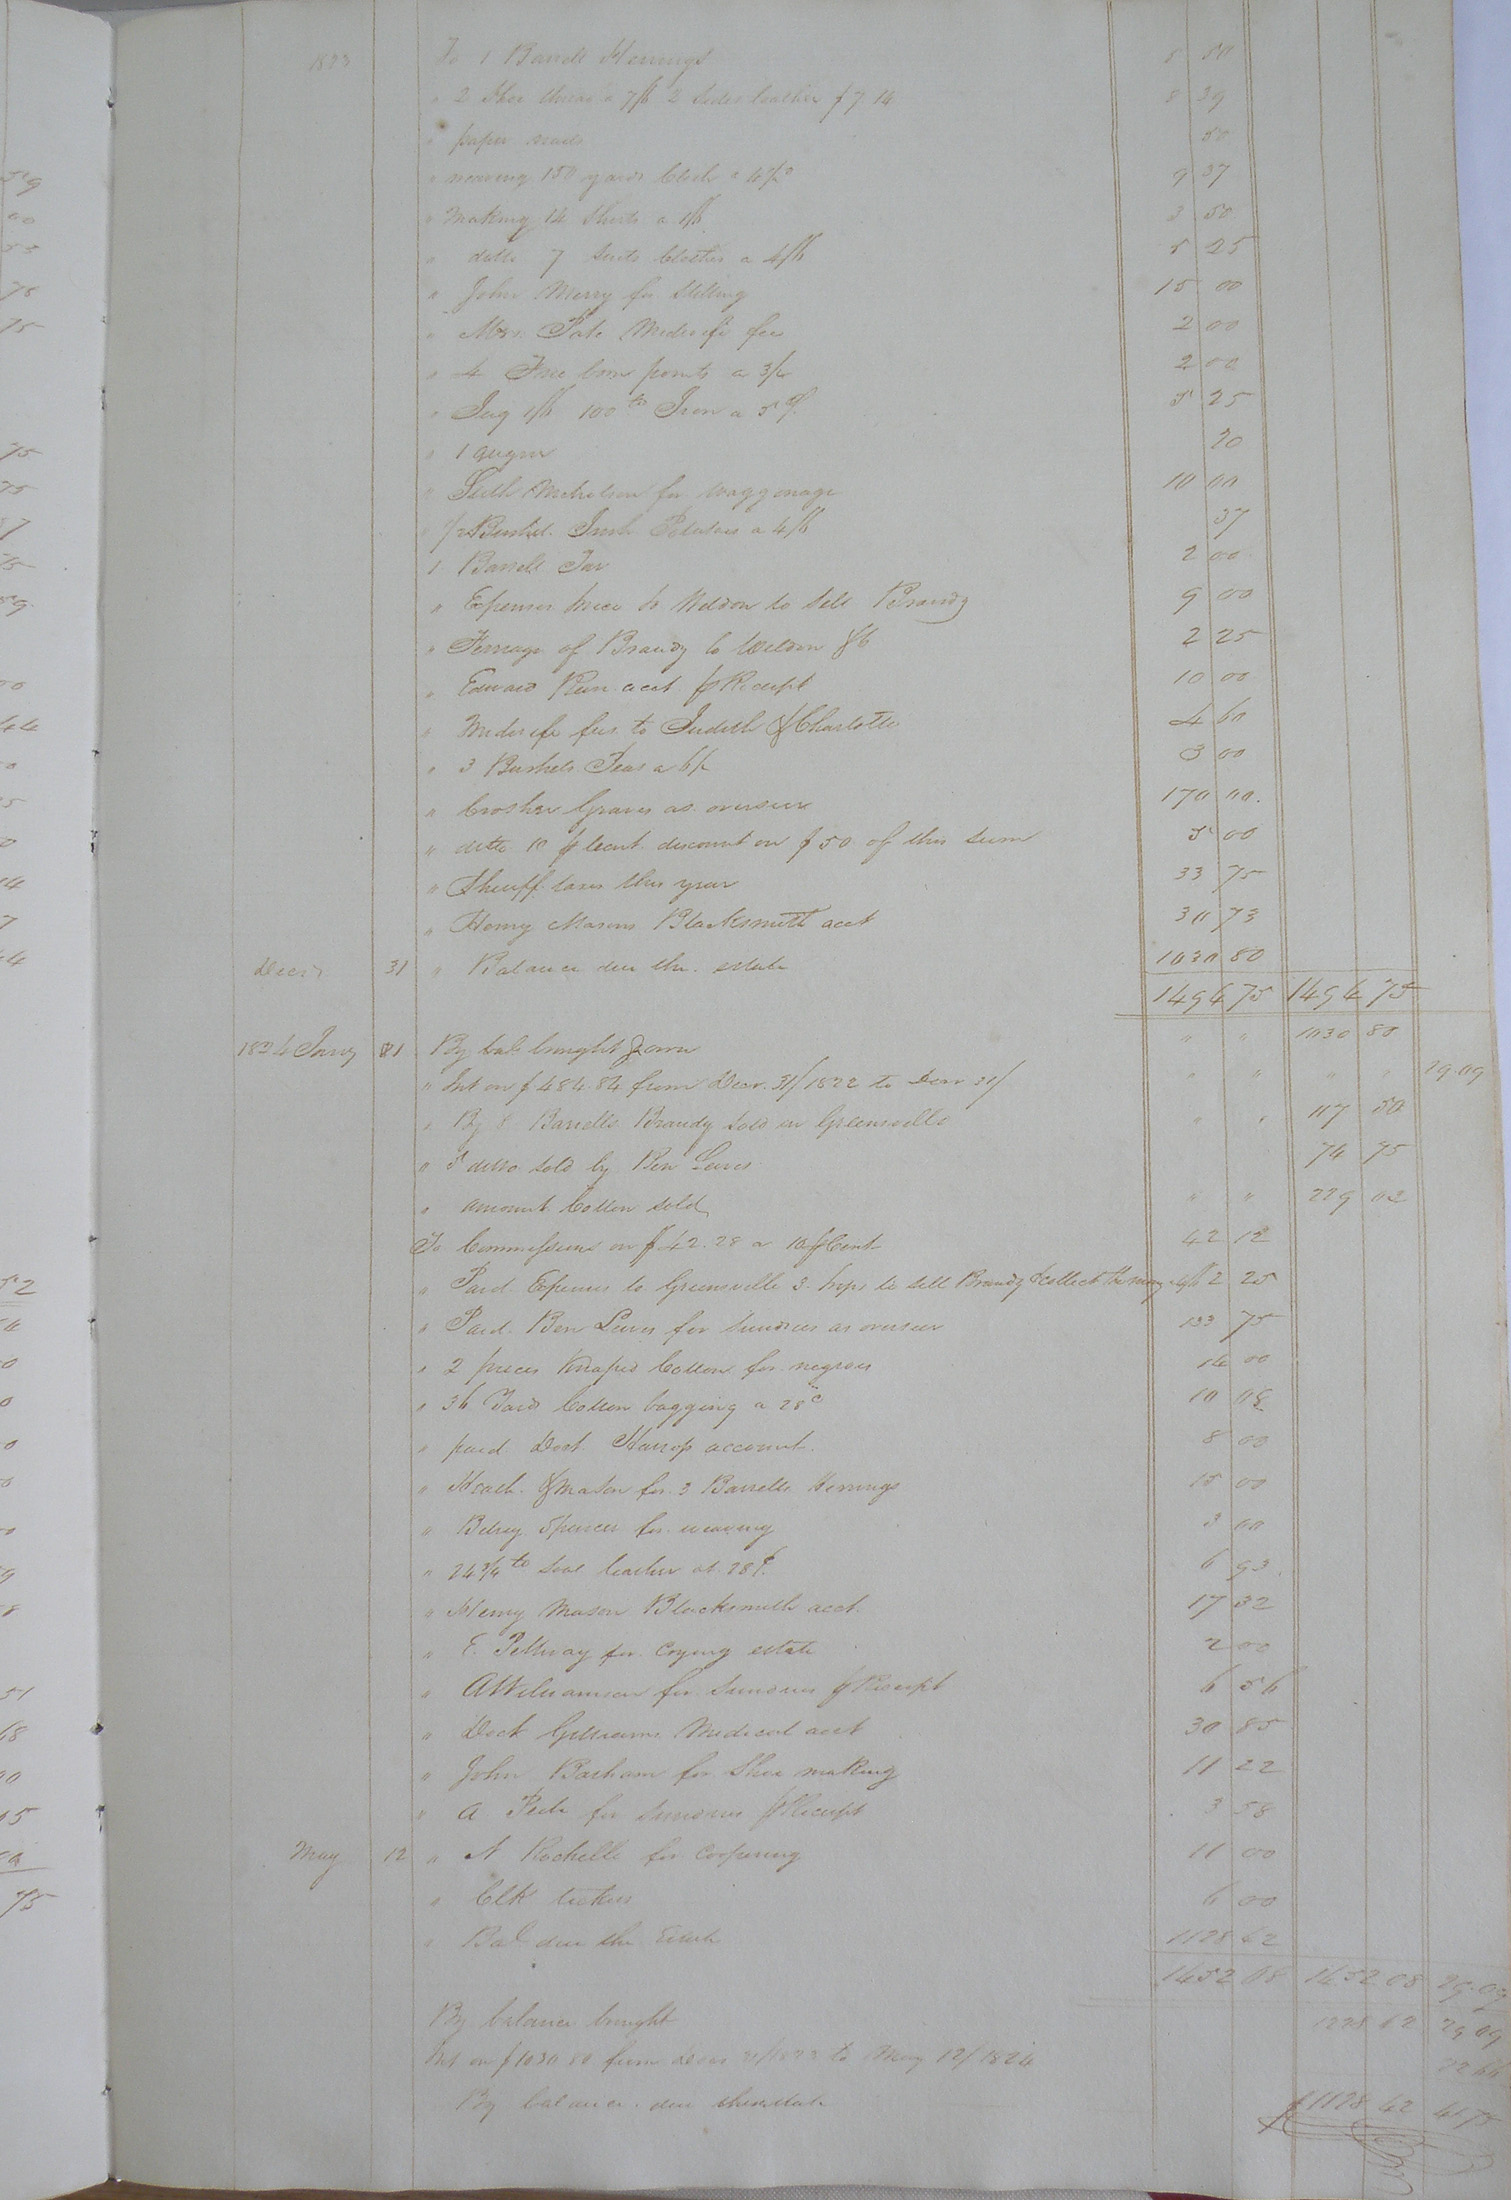 1823 To 1 Barrell Herrings 5 50
" 2 Shoe thread a 7/6 2 sides leather $7.14 8 39
" paper nails 50
" weaving 150 yards Cloth a 4½d 9 37
" Making 14 Shirts a 1/6 3 50
" ditto 7 Suits Clothes a 4/6 5 25
" John Merry for Stilling 15 00
" Mrs. Pate Midwife fee 2 00
" 4 points a 3/ 2 00
" Jug 1/6 100 lbs Iron a 5d 5 25
" 1 auger 20
" Nicholson for waggonage 10 00
" 1/2 Bushel Irish Potatoes a 4/6 37
1 Barrell Tar 2 00
" Expenses twice to Weldon to sell Brandy 9 00
" Ferriage of Brandy to Weldon &c 2 25
" Edward acct. pr Receipt 10 00
" Midwife fees to Judith & Charlotte 4 60
" 3 Bushels Peas a 6/ 3 00
" Graves as overseer 170 00
" ditto 10 pr Cent. discount on $50 of this sum 5 00
" Sheriff taxes this year 33 75
" Henry Masons Blacksmith acct 30 73
Decr 31 " Balance due the estate 1030 80
1494 75 1494 75
1824 Jany 1 By bal. brought down " " 1030 80
" Int on $484.84 from Decr. 31/1822 to Decr 31/ " " " " 29.09
" By 8 Barrells Brandy sold in Greensville " " 117 50
" 5 ditto sold by Ben Lewis 74 75
" amount Cotton sold " " 229 03
To Commissions on $42.28 a 10 pr Cent 42 12
" Paid Expenses to Greensville 3 trips to sell Brandy & collect the money 2 25
" Paid Ben Lewis for sundries as overseer 133 75
" 2 pieces Knaped Cotton for negroes 14 00
" 36 Yards Cotton bagging a 28c 10 08
" paid Doct. Harrop account. 8 00
" & Mason for 3 Barrells Herrings 15 00
" Betsey Spencer for weaving 3 00
" 24¾ lb Sole leather at 28¢ 6 93
" Henry Mason Blacksmith acct. 17 32
" E. Pettway for Crying estate 2 00
" A Williamson for Sundries pr Receipt 6 56
" Doct Gilliams Medical acct 30 85
" John Barham for Shoe making 11 22
" A for sundries pr Receipt 3 58
May 12 " N Rochelle for Coopering 11 00
" Clk tickets 6 00
" Bal due the Estate 1128 62
1452 08 1452 08 29.09
By balance brought 1128 62 29 09
Int on $1030.80 from Decr 31/1823 to May 12/1824 22 66
By balance due the estate $1128 62 51 75